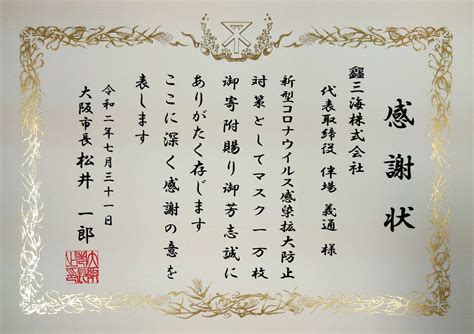 感謝状
鑫三海株式会社
代表取締役 伴場 義通 様
新型コロナウイルス感染拡大防止
対策としてマスク一万枚
御寄附賜り御芳志誠に
ありがたく存じます
ここに深く感謝の意を
表します
令和二年七月三十一日
大阪市長 松井 一郎